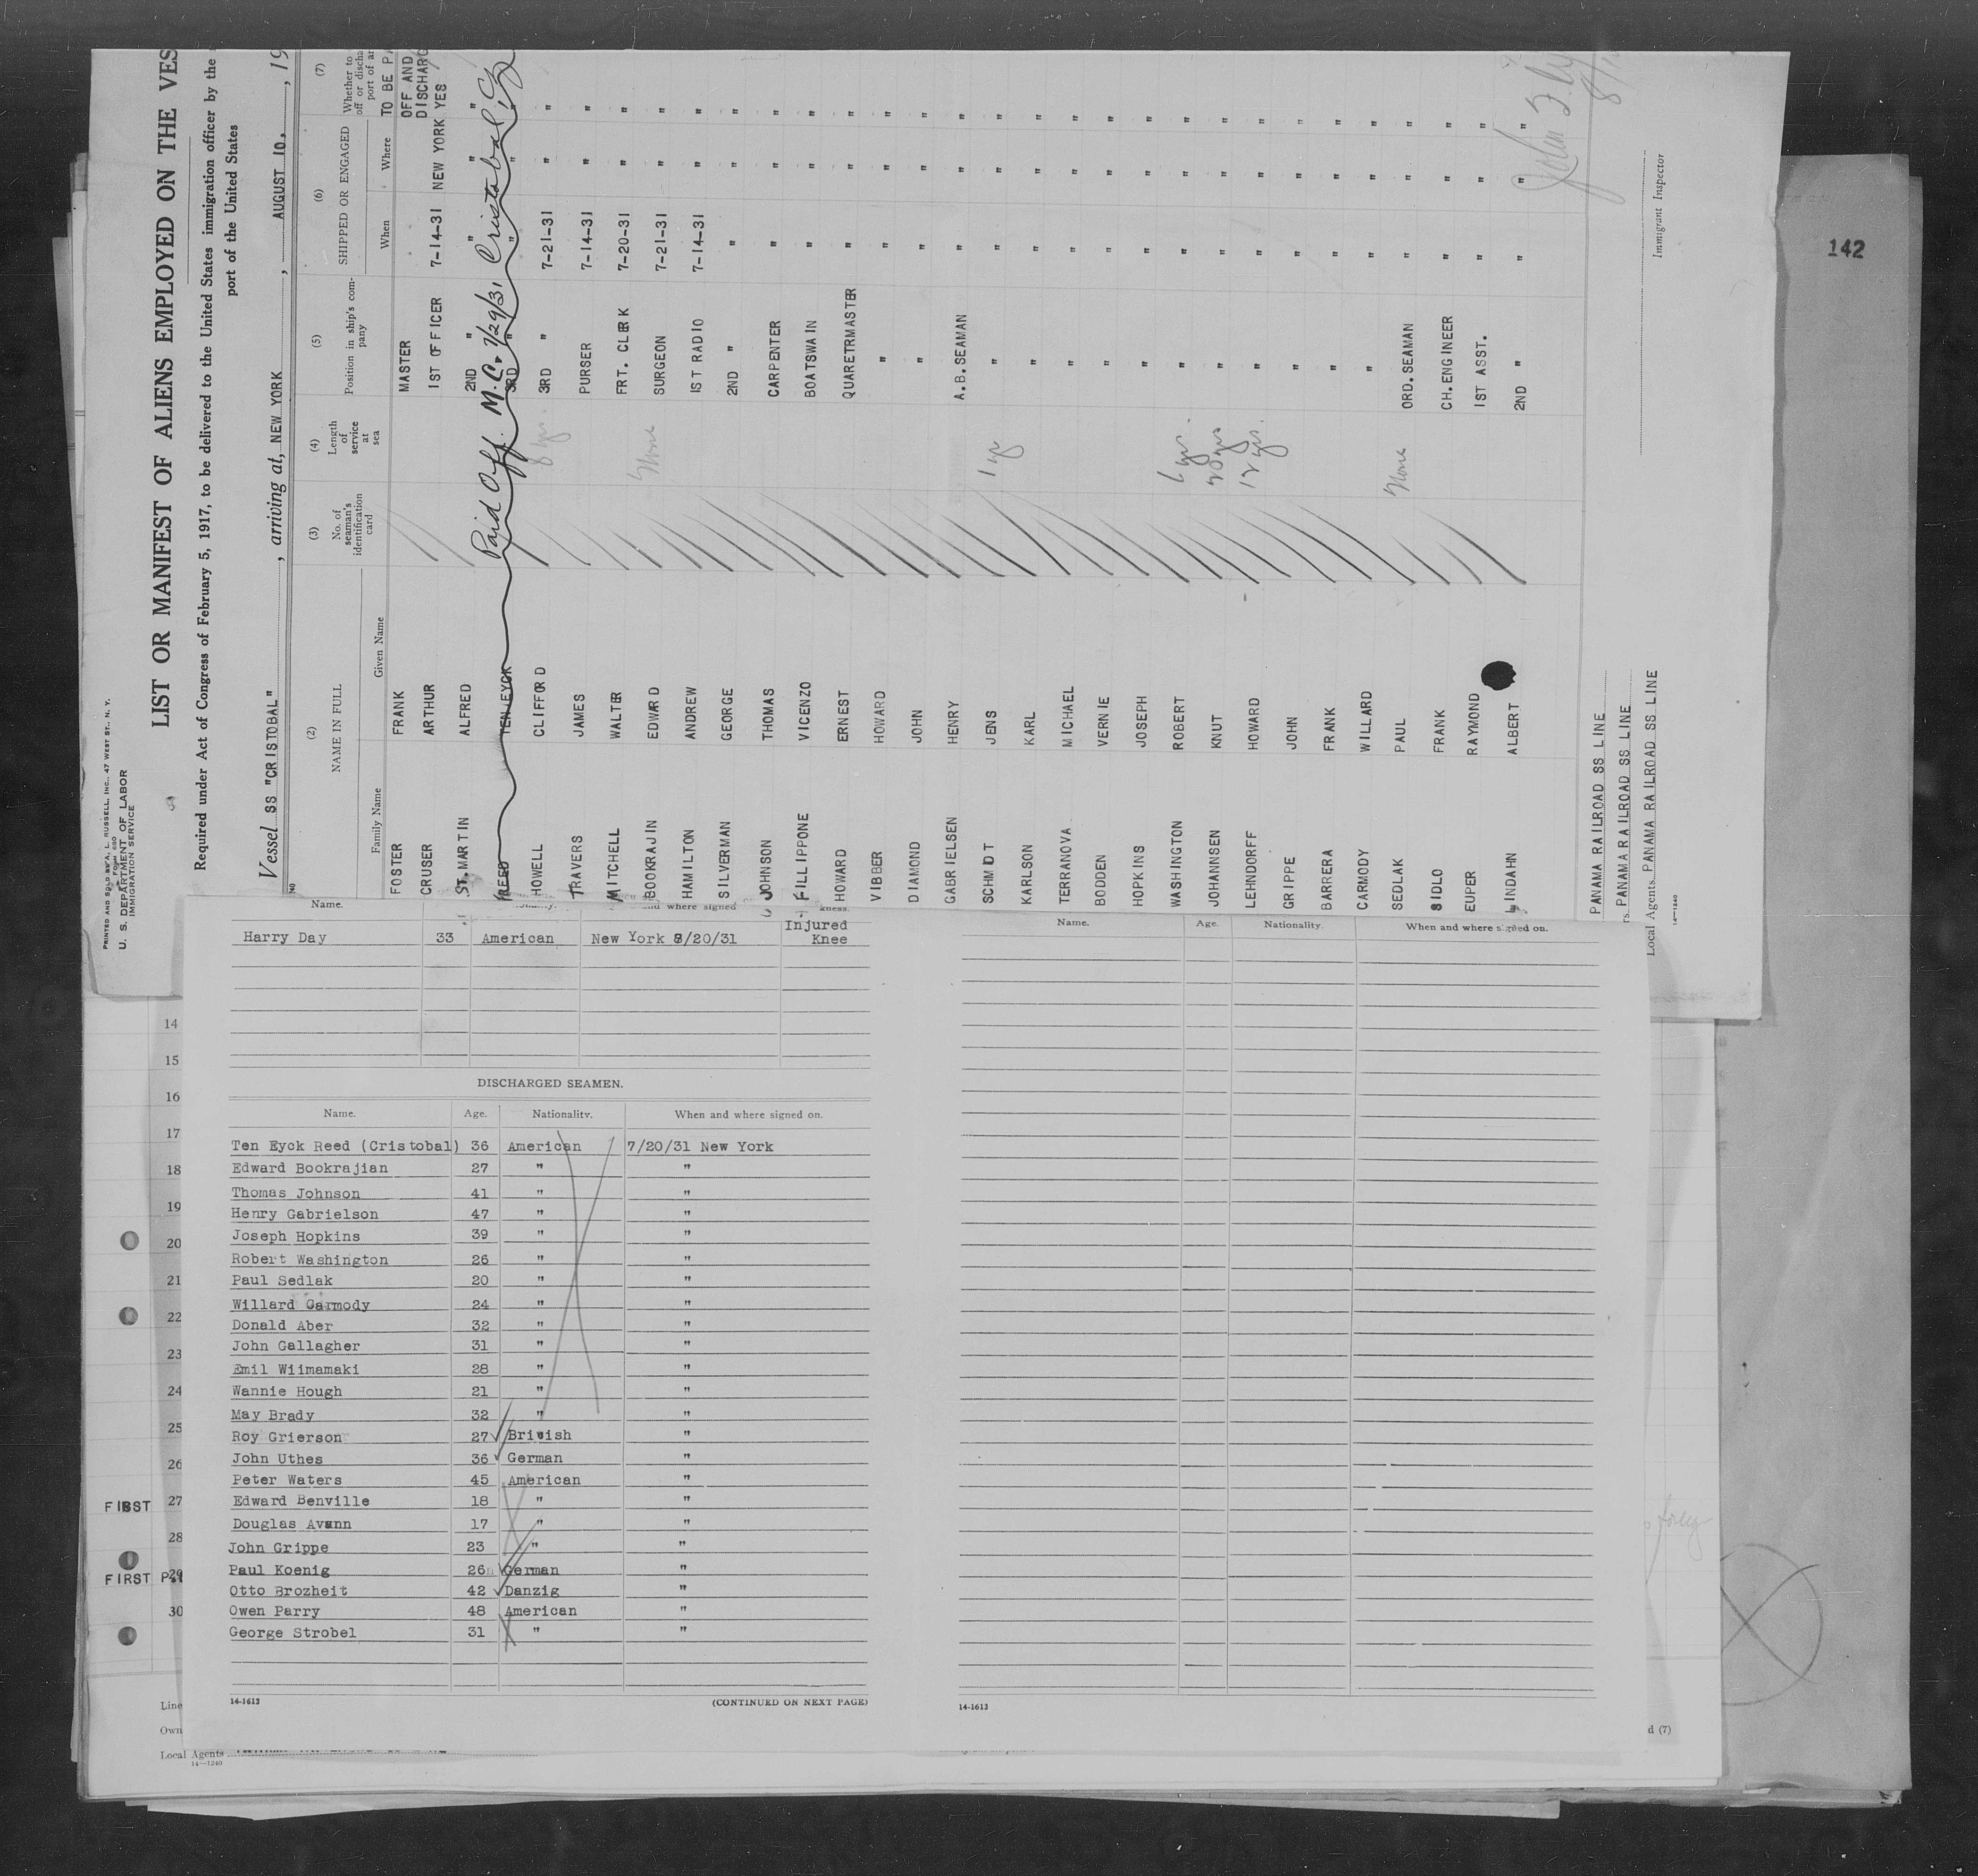 PRINTED AND SOLD BY A. L. RUSSELL, INC., 47 WEST ST., N. Y.
FORM 680
U. S. DEPARTMENT OF LABOR
IMMIGRATION SERVICE
LIST OR MANIFEST OF ALIENS EMPLOYED ON THE VES
Required under Act of Congress of February 5, 1917, to be delivered to the United States immigration officer by the
port of the United States
Vessel SS "CRISTOBAL" , arriving at, NEW YORK , AUGUST 10. , 19
(2) (3) (4) (5) (6) (7)
NO NAME IN FULL No. of seaman's identification card Length of service at sea Position in ship's company SHIPPED OR ENGAGED Whether to
off or discha
port of ar
Family Name Given Name When Where TO BE PA
OFF AND
DISCHARG
FOSTER FRANK MASTER
CRUSER ARTHUR 1ST OFFICER 7-14-31 NEW YORK YES
ST.MARTIN ALFRED 2ND " " " "
REED TEN EYCK 3RD " " " "
Paid Off. M.C. 7/29/31, Cristobal, CZ
HOWELL CLIFFORD 8 yrs. 3RD " 7-21-31 " "
TRAVERS JAMES PURSER 7-14-31 " "
MITCHELL WALTER FRT. CLERK 7-20-31 " "
BOOKRAJIN EDWARD None SURGEON 7-21-31 " "
HAMILTON ANDREW 1ST RADIO 7-14-31 " "
SILVERMAN GEORGE 2ND " " " "
JOHNSON THOMAS CARPENTER " " "
FILLIPPONE VICENZO BOATSWAIN " " "
HOWARD ERNEST QUARETRMASTER " " "
VIBBER HOWARD " " " "
DIAMOND JOHN " " " "
GABRIELSEN HENRY A.B.SEAMAN " " "
SCHMIDT JENS 1 yr " " " "
KARLSON KARL " " " "
TERRANOVA MICHAEL " " " "
BODDEN VERNIE " " " "
HOPKINS JOSEPH " " " "
WASHINGTON ROBERT 6 yrs. " " " "
JOHANNSEN KNUT 20 yrs " " " "
LEHNDORFF HOWARD 12 yrs. " " " "
GRIPPE JOHN " " " "
BARRERA FRANK " " " "
CARMODY WILLARD " " " "
SEDLAK PAUL None ORD.SEAMAN " " "
SIDLO FRANK CH.ENGINEER " " "
EUPER RAYMOND 1ST ASST. " " "
LINDAHN ALBERT 2ND " " " "
PANAMA RAILROAD SS LINE
rs. PANAMA RAILROAD SS LINE
Local Agents PANAMA RAILROAD SS LINE
14—1240
Immigrant Inspector
142
Name. and where signed
Harry Day 33 American New York 8/20/31 Injured
Knee
DISCHARGED SEAMEN.
Name. Age. Nationality. When and where signed on.
Ten Eyck Reed (Cristobal) 36 American 7/20/31 New York
Edward Bookrajian 27 " "
Thomas Johnson 41 " "
Henry Gabrielson 47 " "
Joseph Hopkins 39 " "
Robert Washington 26 " "
Paul Sedlak 20 " "
Willard Carmody 24 " "
Donald Aber 32 " "
John Gallagher 31 " "
Emil Wiimamaki 28 " "
Wannie Hough 21 " "
May Brady 32 " "
Roy Grierson 27 British "
John Uthes 36 German "
Peter Waters 45 American "
Edward Benville 18 " "
Douglas Avann 17 " "
John Grippe 23 " "
Paul Koenig 26 German "
Otto Brozheit 42 Danzig "
Owen Parry 48 American "
George Strobel 31 " "
14-1613 (CONTINUED ON NEXT PAGE)
Name. Age. Nationality. When and where signed on.
14-1613
14
15
16
17
18
19
20
21
22
23
24
25
26
FIRST 27
28
FIRST P 29
30
Line
Own
Local Agents
14—1240
d (7)